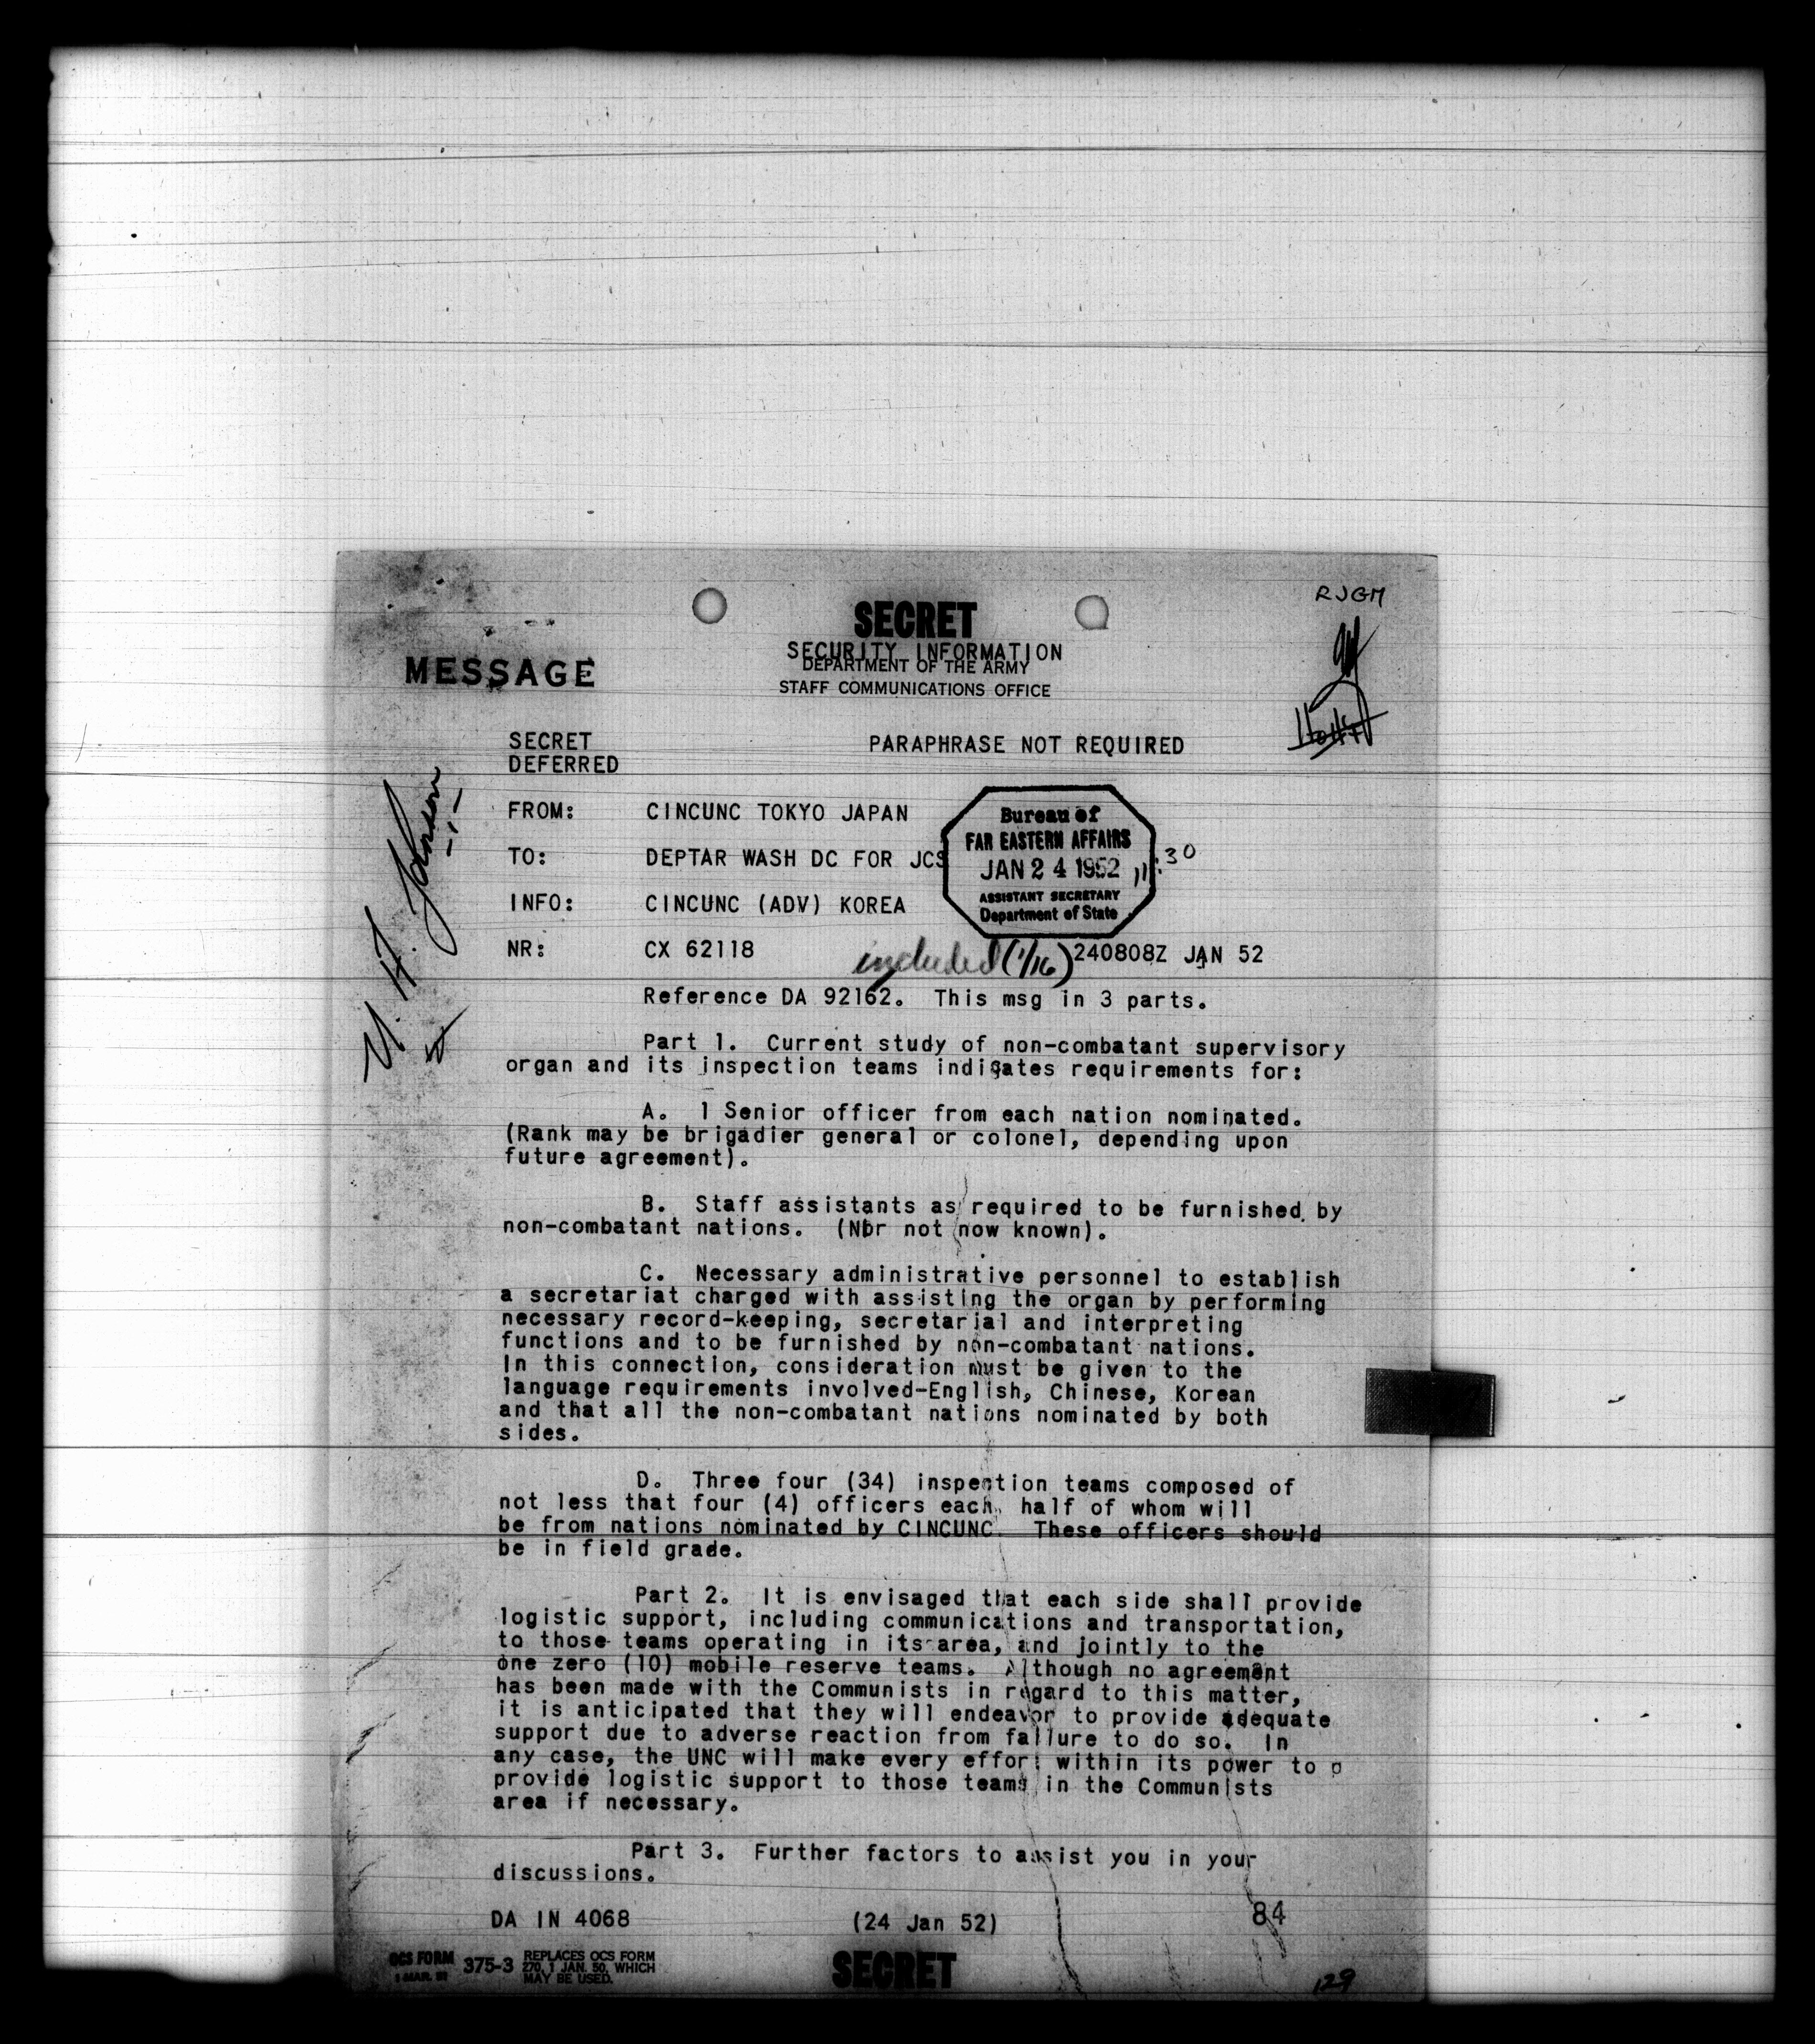 RJGM
SECRET
SECURITY INFORMATION
MESSAGE
DEPARTMENT OF THE ARMY
STAFF COMMUNICATIONS OFFICE
SECRET PARAPHRASE NOT REQUIRED
DEFERRED
U. A. Johnson
FROM: CINCUNC TOKYO JAPAN
TO: DEPTAR WASH DC FOR JCS
INFO: CINCUNC (ADV) KOREA
Bureau of
FAR EASTERN AFFAIRS
JAN 24 1952 11:30
ASSISTANT SECRETARY
Department of State
NR: CX 62118 included (1/16) 240808Z JAN 52
Reference DA 92162. This msg in 3 parts.
Part 1. Current study of non-combatant supervisory
organ and its inspection teams indicates requirements for:
A. 1 Senior officer from each nation nominated.
(Rank may be brigadier general or colonel, depending upon
future agreement).
B. Staff assistants as required to be furnished by
non-combatant nations. (Nbr not now known).
C. Necessary administrative personnel to establish
a secretariat charged with assisting the organ by performing
necessary record-keeping, secretarial and interpreting
functions and to be furnished by non-combatant nations.
In this connection, consideration must be given to the
language requirements involved-English, Chinese, Korean
and that all the non-combatant nations nominated by both
sides.
D. Three four (34) inspection teams composed of
not less that four (4) officers each, half of whom will
be from nations nominated by CINCUNC. These officers should
be in field grade.
Part 2. It is envisaged that each side shall provide
logistic support, including communications and transportation,
to those teams operating in its area, and jointly to the
one zero (10) mobile reserve teams. Although no agreement
has been made with the Communists in regard to this matter,
it is anticipated that they will endeavor to provide adequate
support due to adverse reaction from failure to do so. In
any case, the UNC will make every effort within its power to
provide logistic support to those teams in the Communists
area if necessary.
Part 3. Further factors to assist you in your
discussions.
DA IN 4068 (24 Jan 52) 84
OCS FORM 375-3 REPLACES OCS FORM
1 MAR. 51 270, 1 JAN. 50, WHICH
MAY BE USED.
SECRET
129